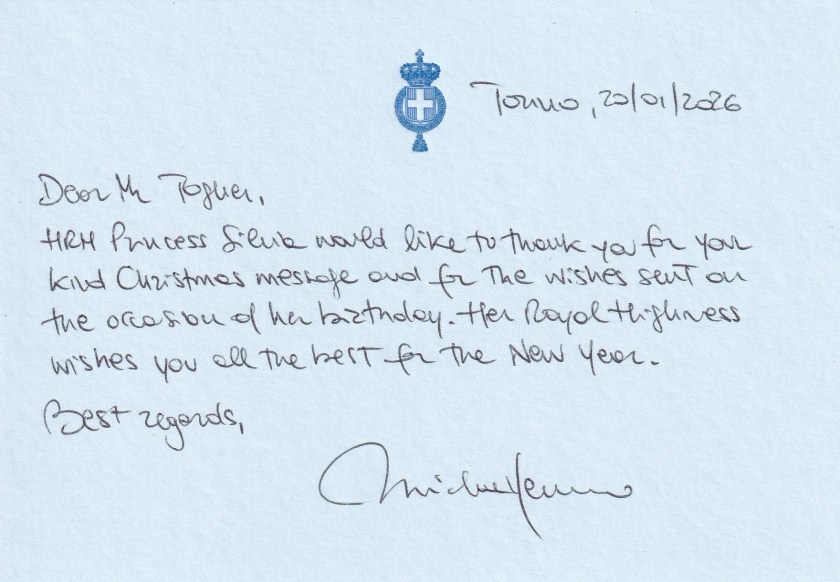 Torino, 20/01/2026
Dear Mr Togner,
HRH Princess Silvia would like to thank you for your
kind Christmas message and for the wishes sent on
the occasion of her birthday. Her Royal Highness
wishes you all the best for the New Year.
Best regards,